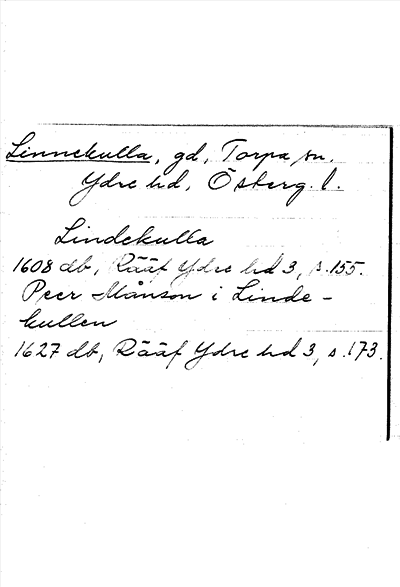 Linnekulla, gd, Torpa sn.
Ydre hd, Österg. l.
Lindekulla
1608 db, Rääf Ydre hd 3, s. 155.
Peer Månson i Linde-
kullen
1627 db, Rääf Ydre hd 3, s. 173.